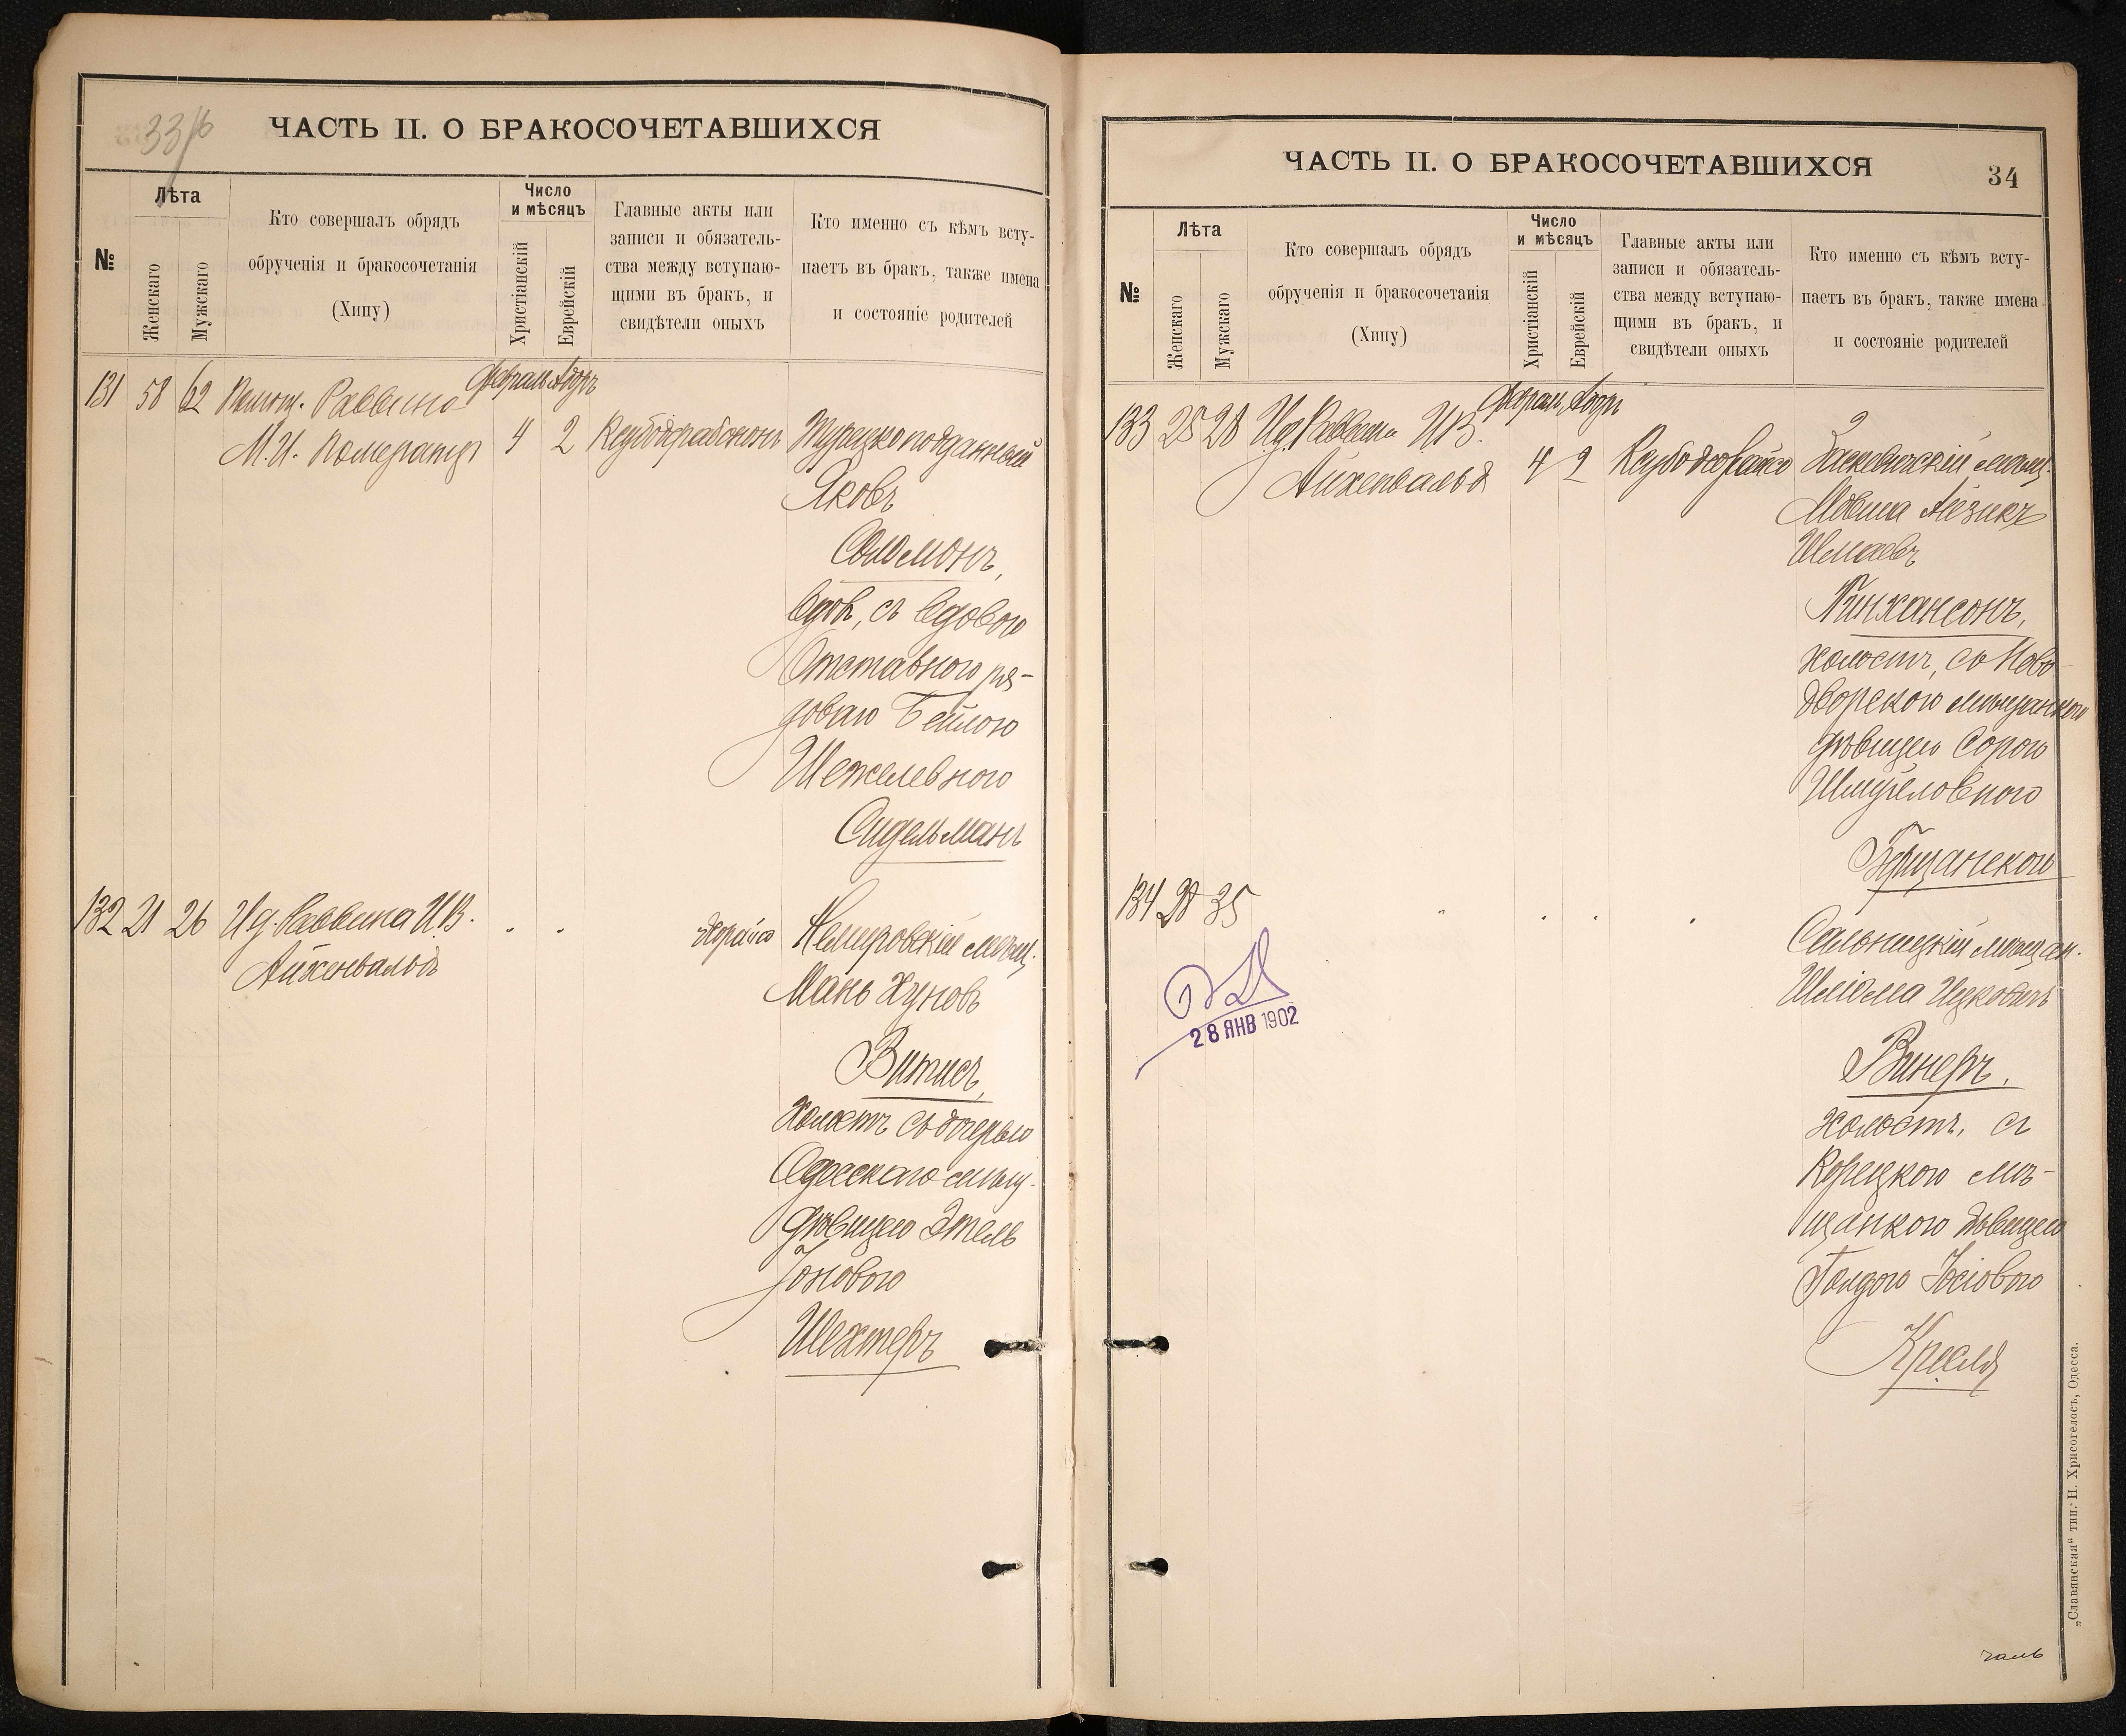 33/б
ЧАСТЬ II. О БРАКОСОЧЕТАВШИХСЯ
№
Лѣта
Женскаго
Мужскаго
Кто совершалъ обрядъ
обрученія и бракосочетанія
(Хипу)
Число
и мѣсяцъ
Христіанскій
Еврейскій
Главные акты или
записи и обязатель-
ства между вступаю-
щими въ бракъ, и
свидѣтели оныхъ
Кто именно съ кѣмъ всту-
паетъ въ бракъ, также имена
и состояніе родителей
Февраль Адаръ
131 58 62 Помощ. Раввина
М.И. Померанцъ 4 2 Турецкоподданный
Яковъ
Соломонъ,
вдов, съ вдовою
Отставного ря-
дового Бейлою
Шежелевною
Сидельманъ
132 21 26 Ид. Раввина И.В.
Айхенвальдъ
Немировскій мѣщ.
Мань Хуновъ
Витисъ,
холостъ съ дочерью
Одесскаго мѣщ.
дѣвицею Этель
Іоновою
Шехтеръ
ЧАСТЬ II. О БРАКОСОЧЕТАВШИХСЯ
34
№
Лѣта
Женскаго
Мужскаго
Кто совершалъ обрядъ
обрученія и бракосочетанія
(Хипу)
Число
и мѣсяцъ
Христіанскій
Еврейскій
Главные акты или
записи и обязатель-
ства между вступаю-
щими въ бракъ, и
свидѣтели оныхъ
Кто именно съ кѣмъ всту-
паетъ въ бракъ, также имена
и состояніе родителей
Февраль Адаръ
133 25 28 Ид. Раввина И.В.
Айхенвальдъ 4 2 мѣщ.
Мовша Айзикъ
Шмаевъ
Пинхансонъ,
холостъ, съ Ново
дворскою мѣщанкою
дѣвицею Сорою
Шмуеловною
134 28 35
Сальницкій мѣщан.
Шліома Ицковичъ
Винеръ,
холостъ, съ
Корецкою мѣ-
щанкою дѣвицею
Голдою Іосіовою
Кресля
28 ЯНВ 1902
„Славянская“ тип. Н. Хрисогелосъ, Одесса.